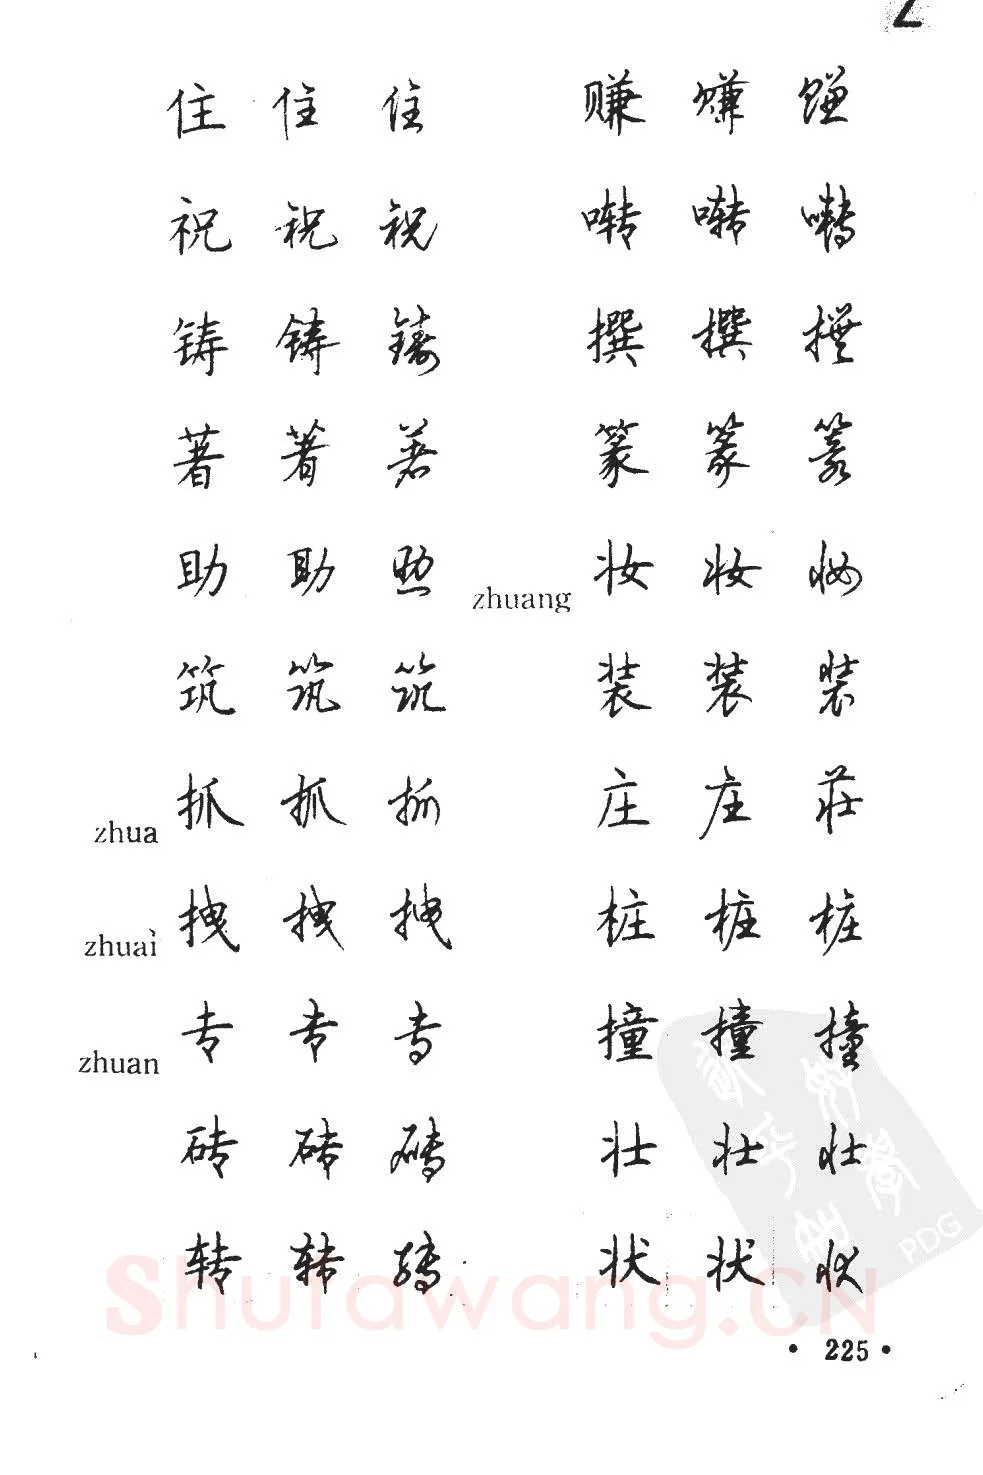 Z
住 住 住
祝 祝 祝
铸 铸 鑄
著 著 著
助 助 助
筑 筑 筑
zhua 抓 抓 抓
zhuaì 拽 拽 拽
zhuan 专 专 专
砖 砖 砖
转 转 转
赚 赚 赚
啭 啭 囀
撰 撰 撰
篆 篆 篆
zhuang 妆 妆 妆
装 装 装
庄 庄 莊
桩 桩 桩
撞 撞 撞
壮 壮 壮
状 状 状
Shufawang.CN
PDG
• 225 •